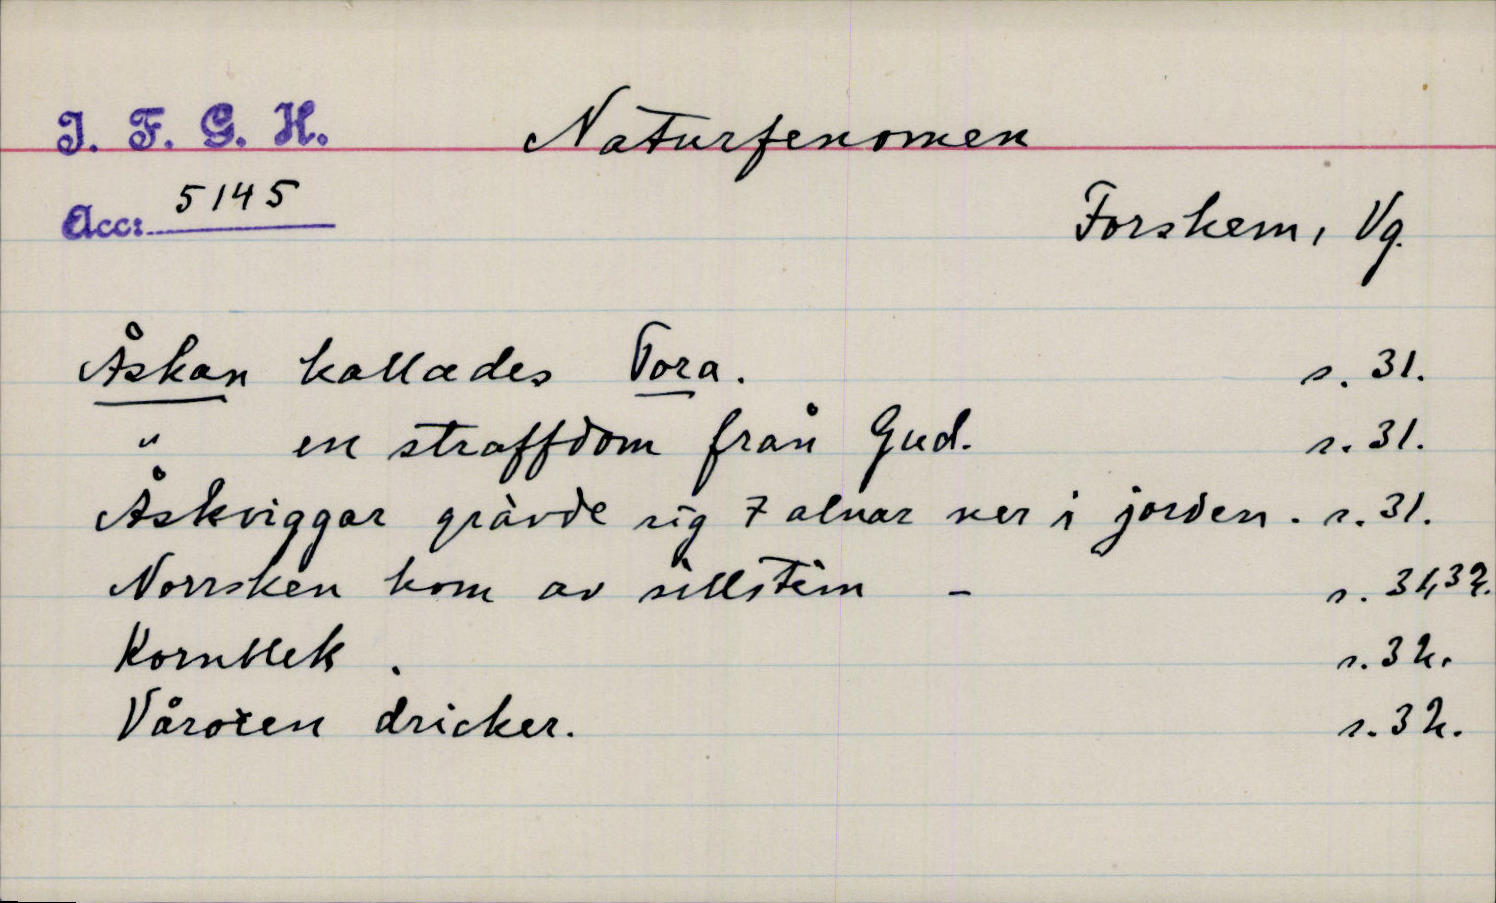 I. F. G. H.
Naturfenomen
Acc: 5145
Forshem, Vg.
Åskan kallades Tora. s. 31.
" en straffdom från Gud. s. 31.
Åskviggar grävde sig 7 alnar ner i jorden. s. 31.
Norrsken kom av sillstim - s. 31, 32.
Kornblek. s. 32.
Våroxen dricker. s. 32.